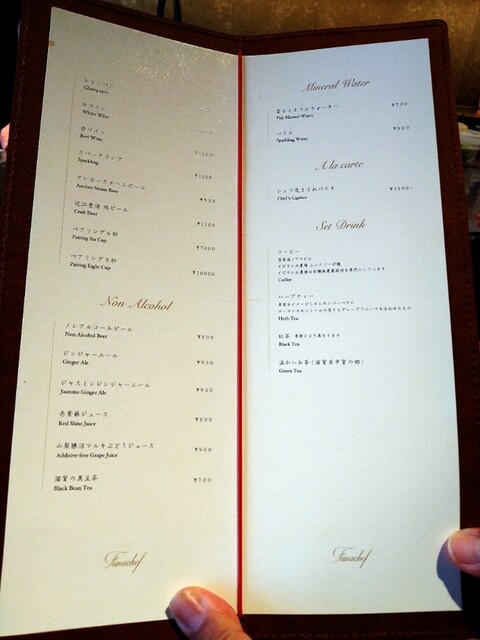 シャンパン
Champagne
白ワイン
White Wine
赤ワイン
Red Wine
スパークリング
Sparkling
アンカースチームビール
Anchor Steam Beer
¥900
近江麦酒 地ビール
Craft Beer
ペアリング6杯
Pairing Six Cup
¥7000
ペアリング8杯
Pairing Eight Cup
¥10000
Non Alcohol
ノンアルコールビール
Non Alcohol Beer
¥800
ジンジャーエール
Ginger Ale
¥950
ジャスミンジンジャーエール
Jasmine Ginger Ale
¥950
赤紫蘇ジュース
Red Shiso Juice
¥800
山梨勝沼マルキぶどうジュース
Additive-free Grape Juice
¥900
滋賀の黒豆茶
Black Bean Tea
¥700
Funachef
Mineral Water
富士ミネラルウォーター
Fuji Mineral Water
¥700
ペリエ
Sparkling Water
¥800
A la carte
シェフ気まぐれパスタ
Chef's Caprice
¥1500-
Set Drink
コーヒー
Coffee
ハーブティー
Herb Tea
紅茶 季節により異なります
Black Tea
温かいお茶(滋賀県甲賀の郷)
Green Tea
Funachef